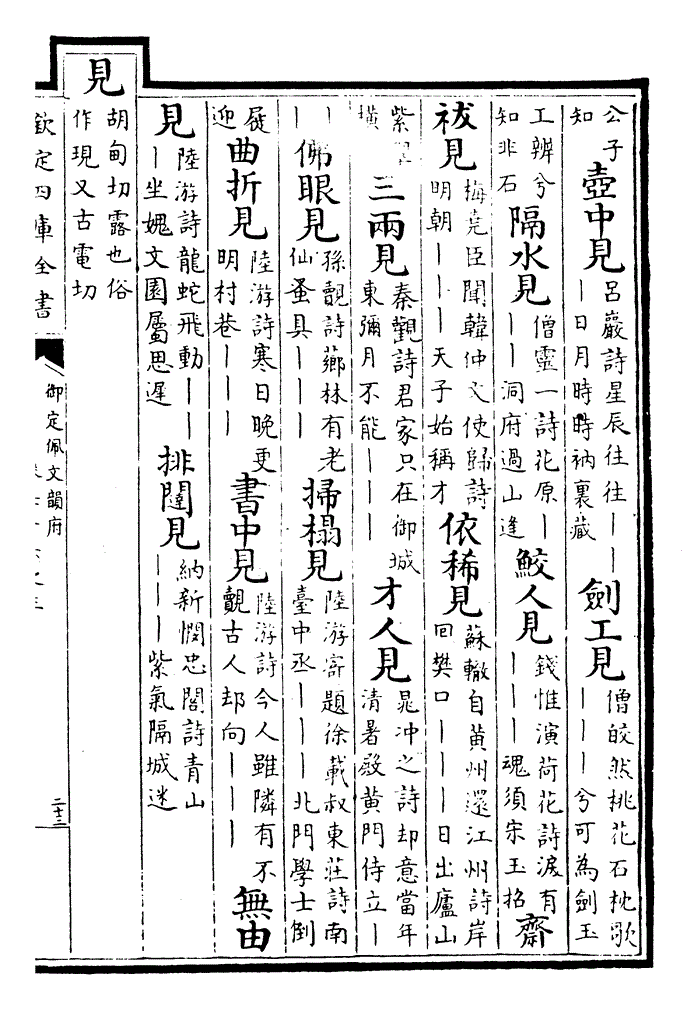 公子
知
壺中見
呂巖詩星辰往往丨丨
丨日月時時衲裏藏
劍工見
僧皎然桃花石枕歌
丨丨丨兮可為劍玉
工辨兮
知非石
隔水見
僧靈一詩花原丨
丨丨洞府過山逢
鮫人見
錢惟演荷花詩淚有
丨丨丨魂須宋玉招
齋
祓見
梅堯臣聞韓仲文使歸詩
明朝丨丨丨天子始稱才
依稀見
蘇轍自黄州還江州詩岸
回樊口丨丨丨日出廬山
紫
横
三兩見
秦觀詩君家只在御城
東彌月不能丨丨丨
才人見
晁冲之詩却意當年
清暑殿黄門侍立丨
丨
丨
佛眼見
孫覿詩薌林有老
仙蚤具丨丨丨
掃榻見
陸游寄題徐載叔東莊詩南
臺中丞丨丨丨北門學士倒
屣
迎
曲折見
陸游詩寒日晚更
明村巷丨丨丨
書中見
陸游詩今人雖隣有不
覿古人却向丨丨丨
無由
見
陸游詩龍蛇飛動丨丨
丨坐媿文園屬思遲
排闥見
納新憫忠閣詩青山
丨丨丨紫氣隔城迷
見
胡甸切露也俗
作現又古電切
欽定四庫全書
御定佩文韻府
二十三